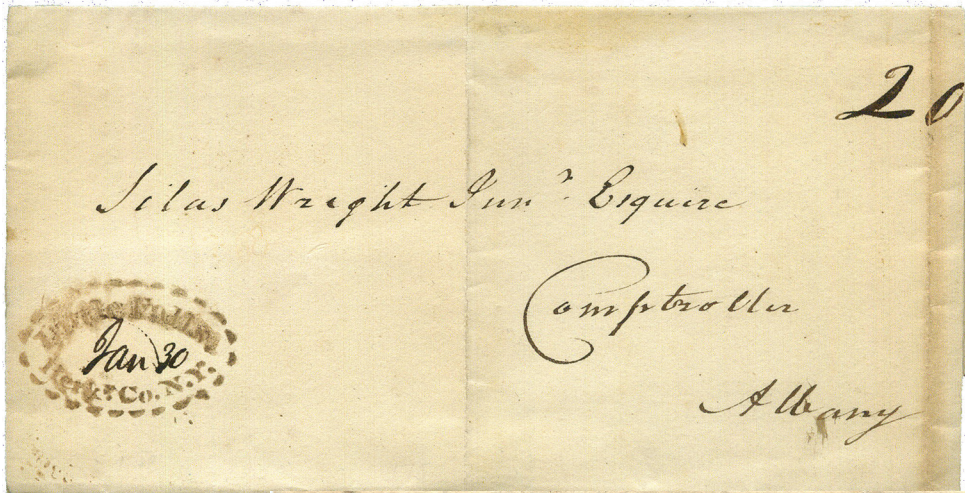 20
Silas Wright Junr Esquire
Comptroller
Albany
Little Falls
Jan 30
Herkr Co. N.Y.